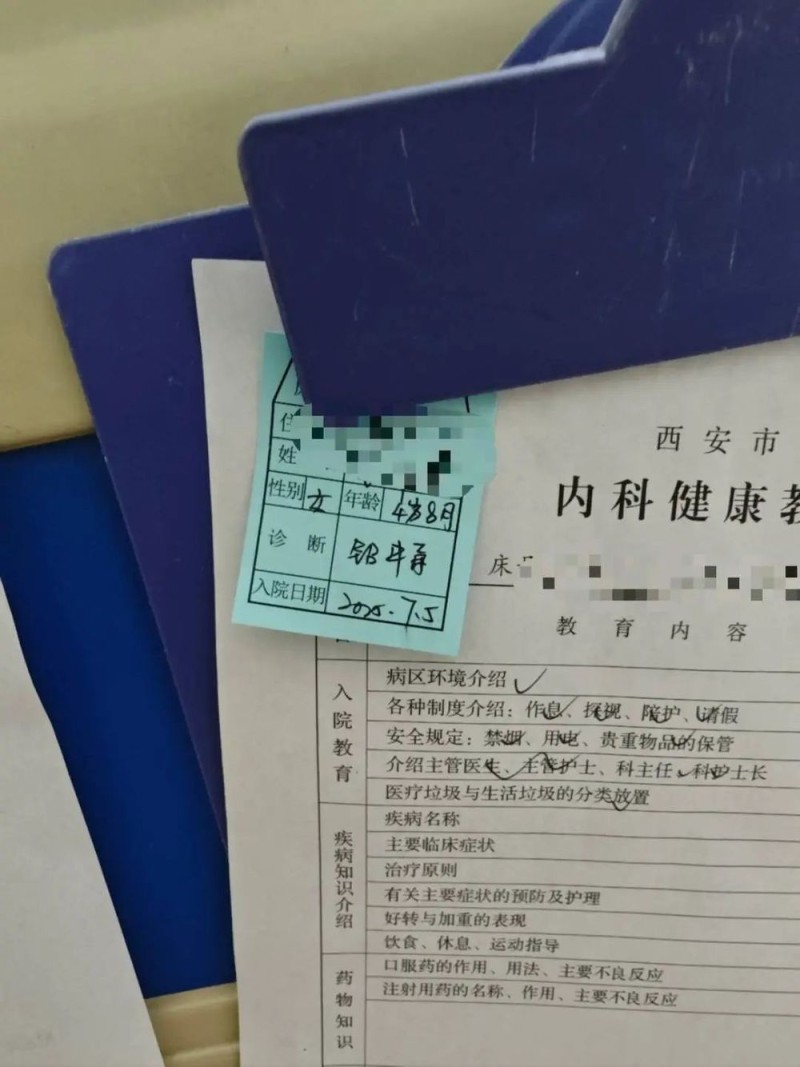 住
姓
性别 女 年龄 4岁8月
诊断
入院日期 2025.7.5
西安市
内科健康教
床
教育内容
入院教育
病区环境介绍 ✓
各种制度介绍：作息、探视、陪护、请假
安全规定：禁烟、用电、贵重物品的保管
介绍主管医生、主管护士、科主任、科护士长
医疗垃圾与生活垃圾的分类放置
疾病知识介绍
疾病名称
主要临床症状
治疗原则
有关主要症状的预防及护理
好转与加重的表现
饮食、休息、运动指导
药物知识
口服药的作用、用法、主要不良反应
注射用药的名称、作用、主要不良反应